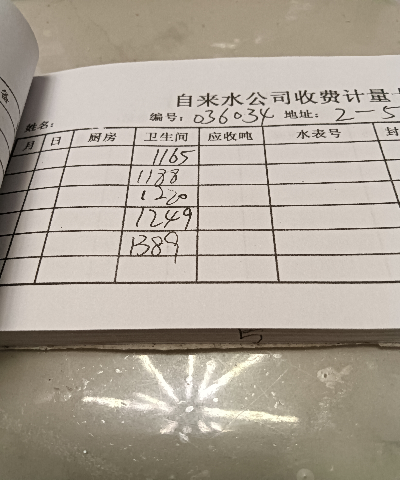 自来水公司收费计量
姓名: 编号: 036034 地址: 2-5
月 日 厨房 卫生间 应收吨 水表号 封
1165
1188
1220
1249
1389
5